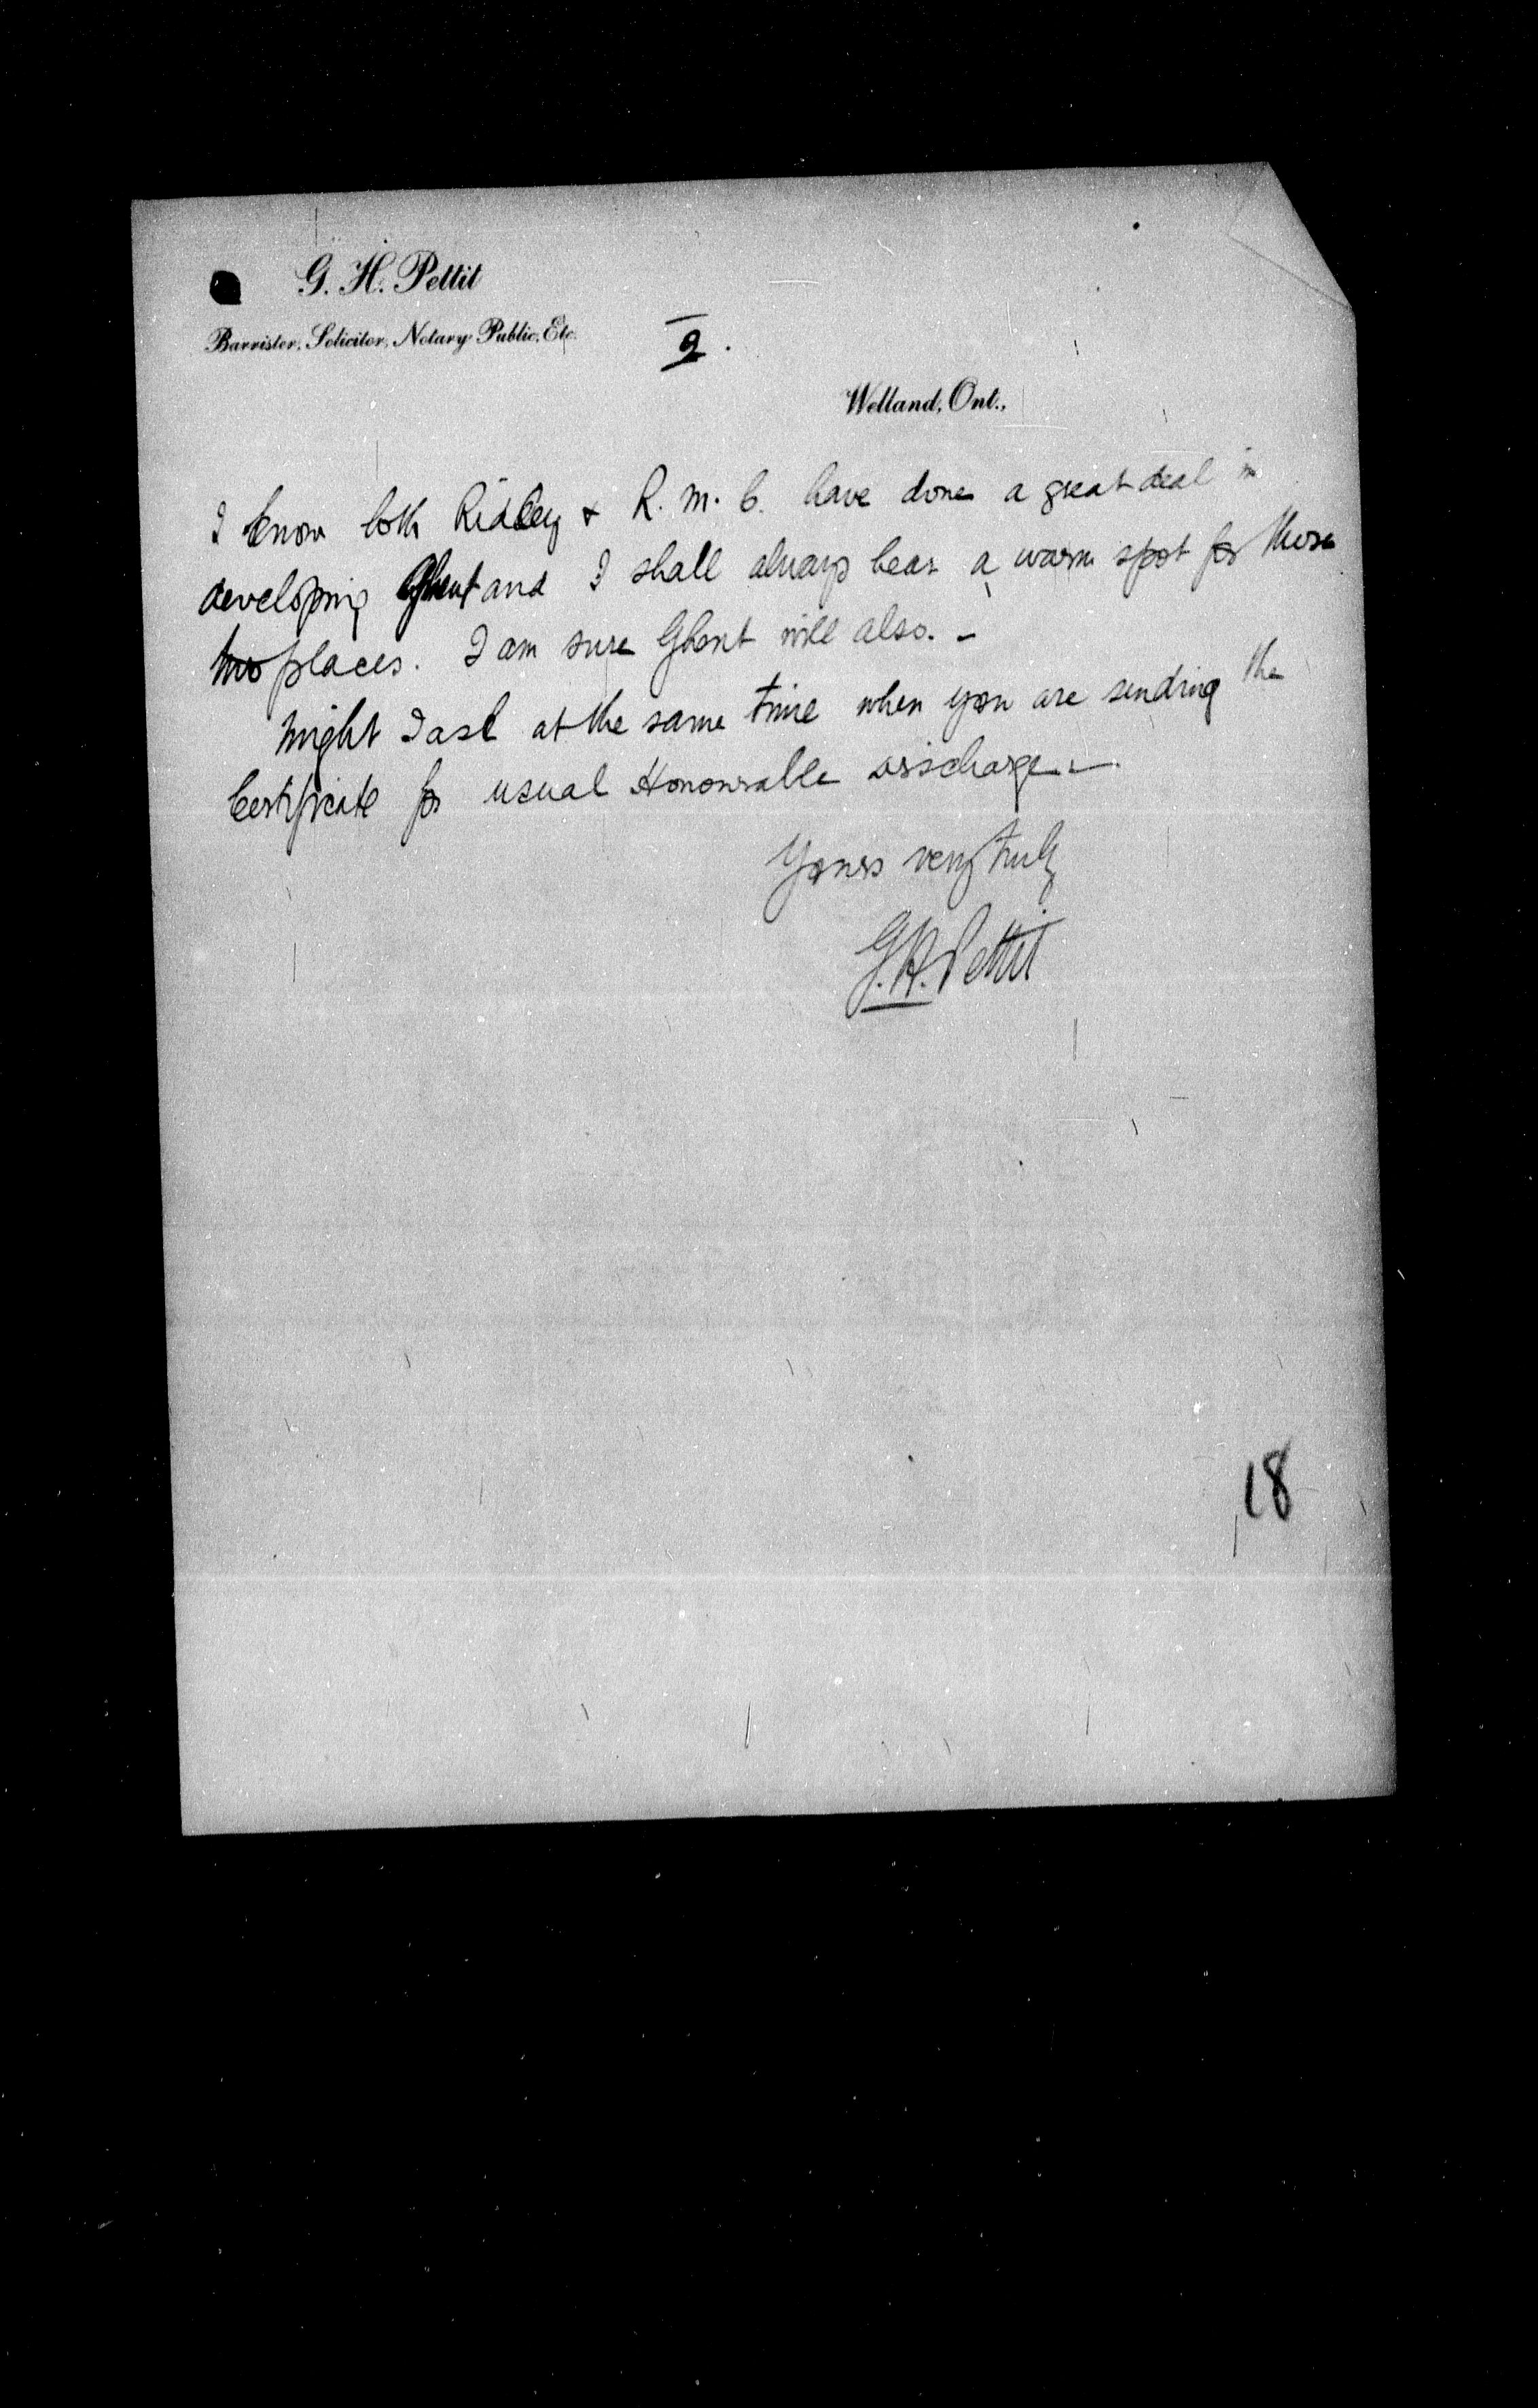 G. H. Pettit
Barrister, Solicitor, Notary Public, Etc.
2.
Welland, Ont.,
I know both Ridley & R. M. C. have done a great deal in
developing Ghent and I shall always bear a warm spot for those
two places. I am sure Ghent will also. -
Might I ask at the same time when you are sending the
Certificate for usual Honourable discharge. -
Yours very truly
G.H. Pettit
18